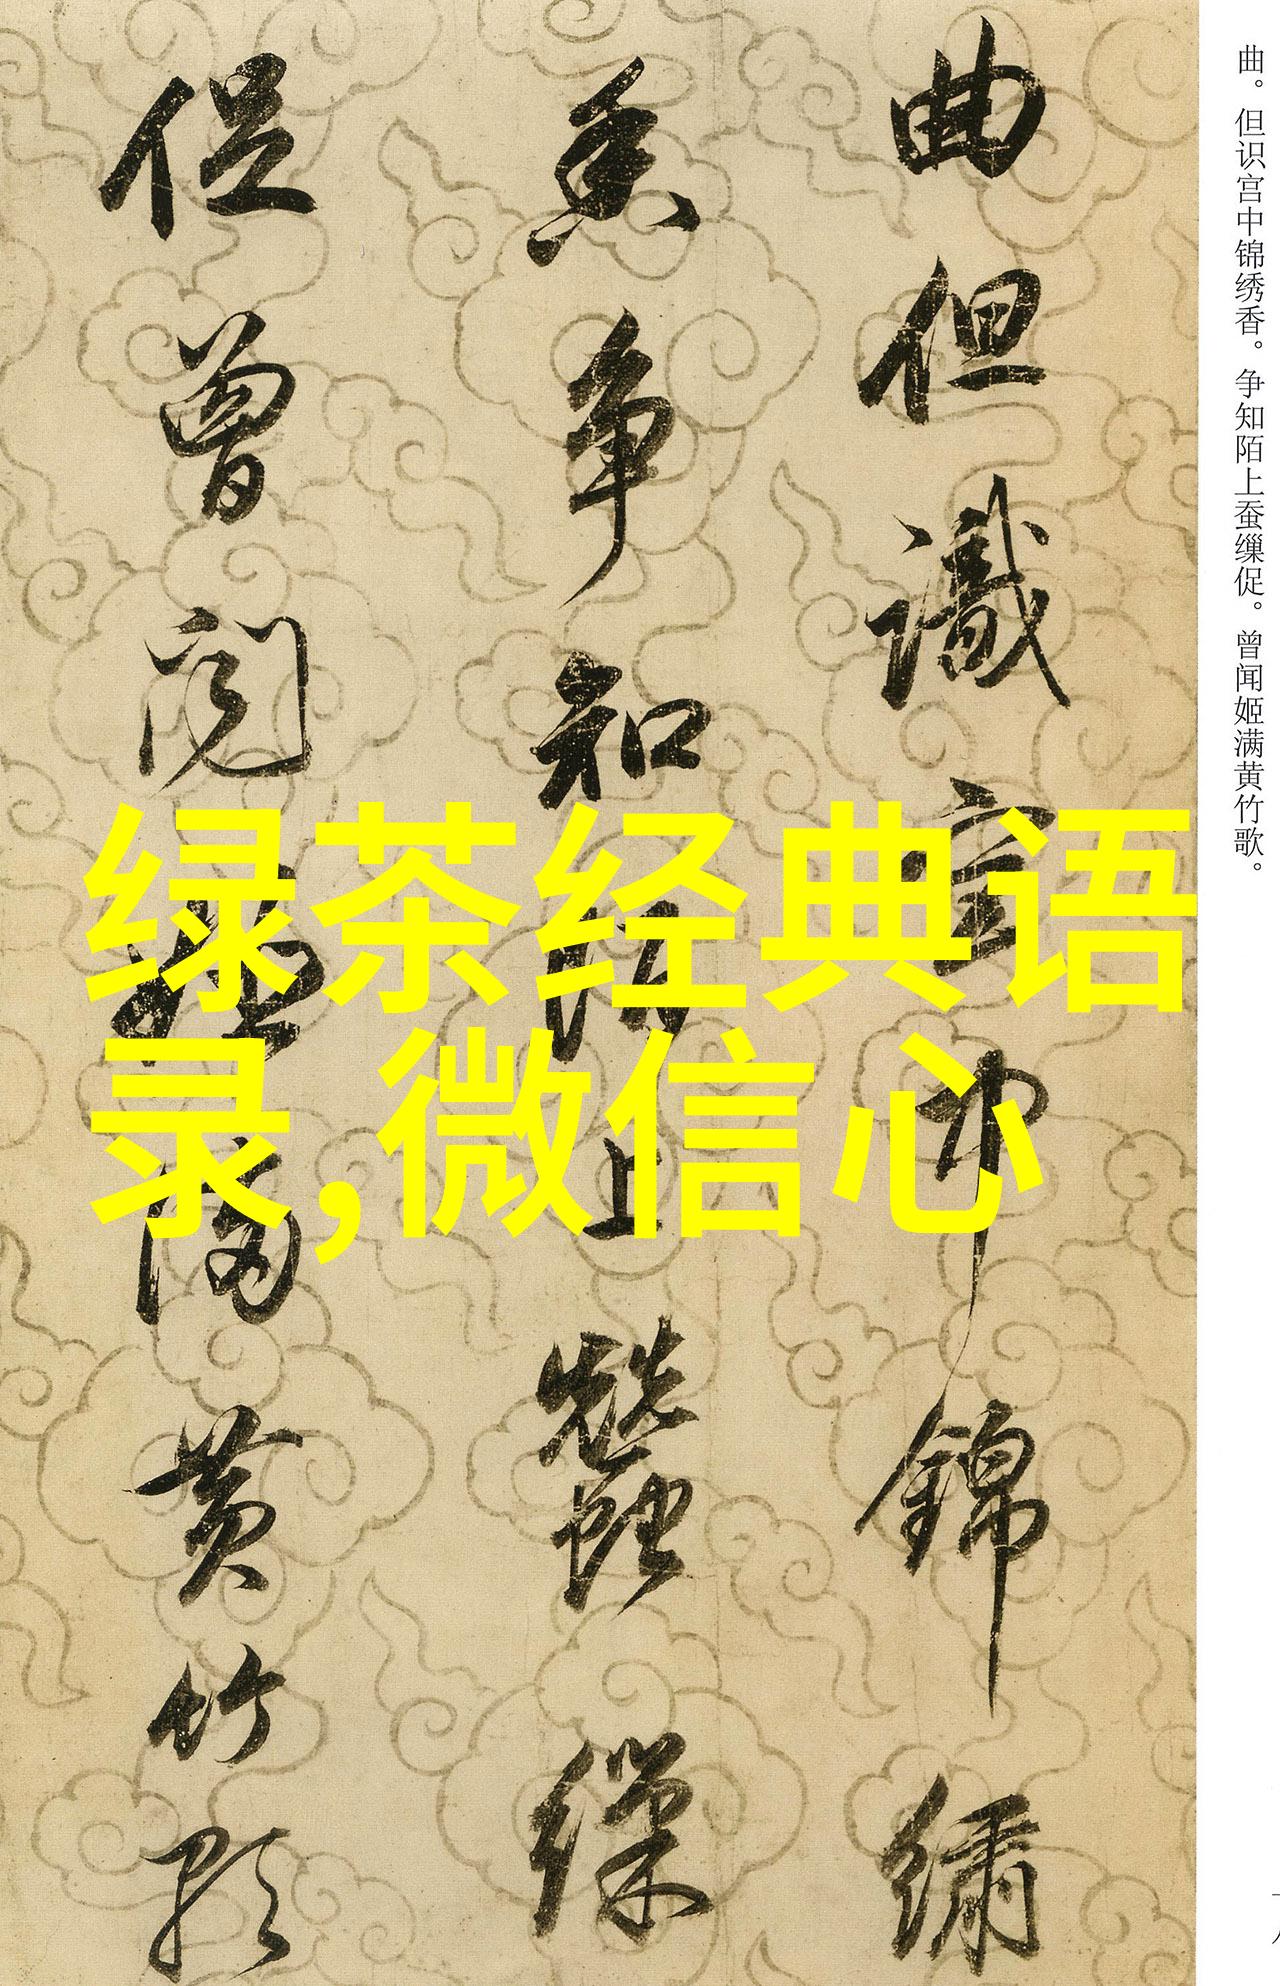 曲但識宮中錦繡
香争知陌上蠶繅
促曾聞姬滿黄竹歌
曲。但识宫中锦绣香。争知陌上蚕缫促。曾闻姬满黄竹歌。
绿茶经典语
录,微信心